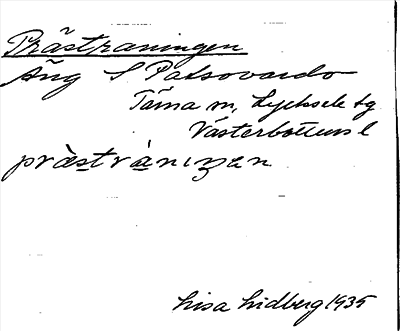 Prästraningen
Äng S Patsovardo
Tärna sn, Lycksele tg
Västerbottens l
pràstránıŋen
Lisa Lidberg 1935